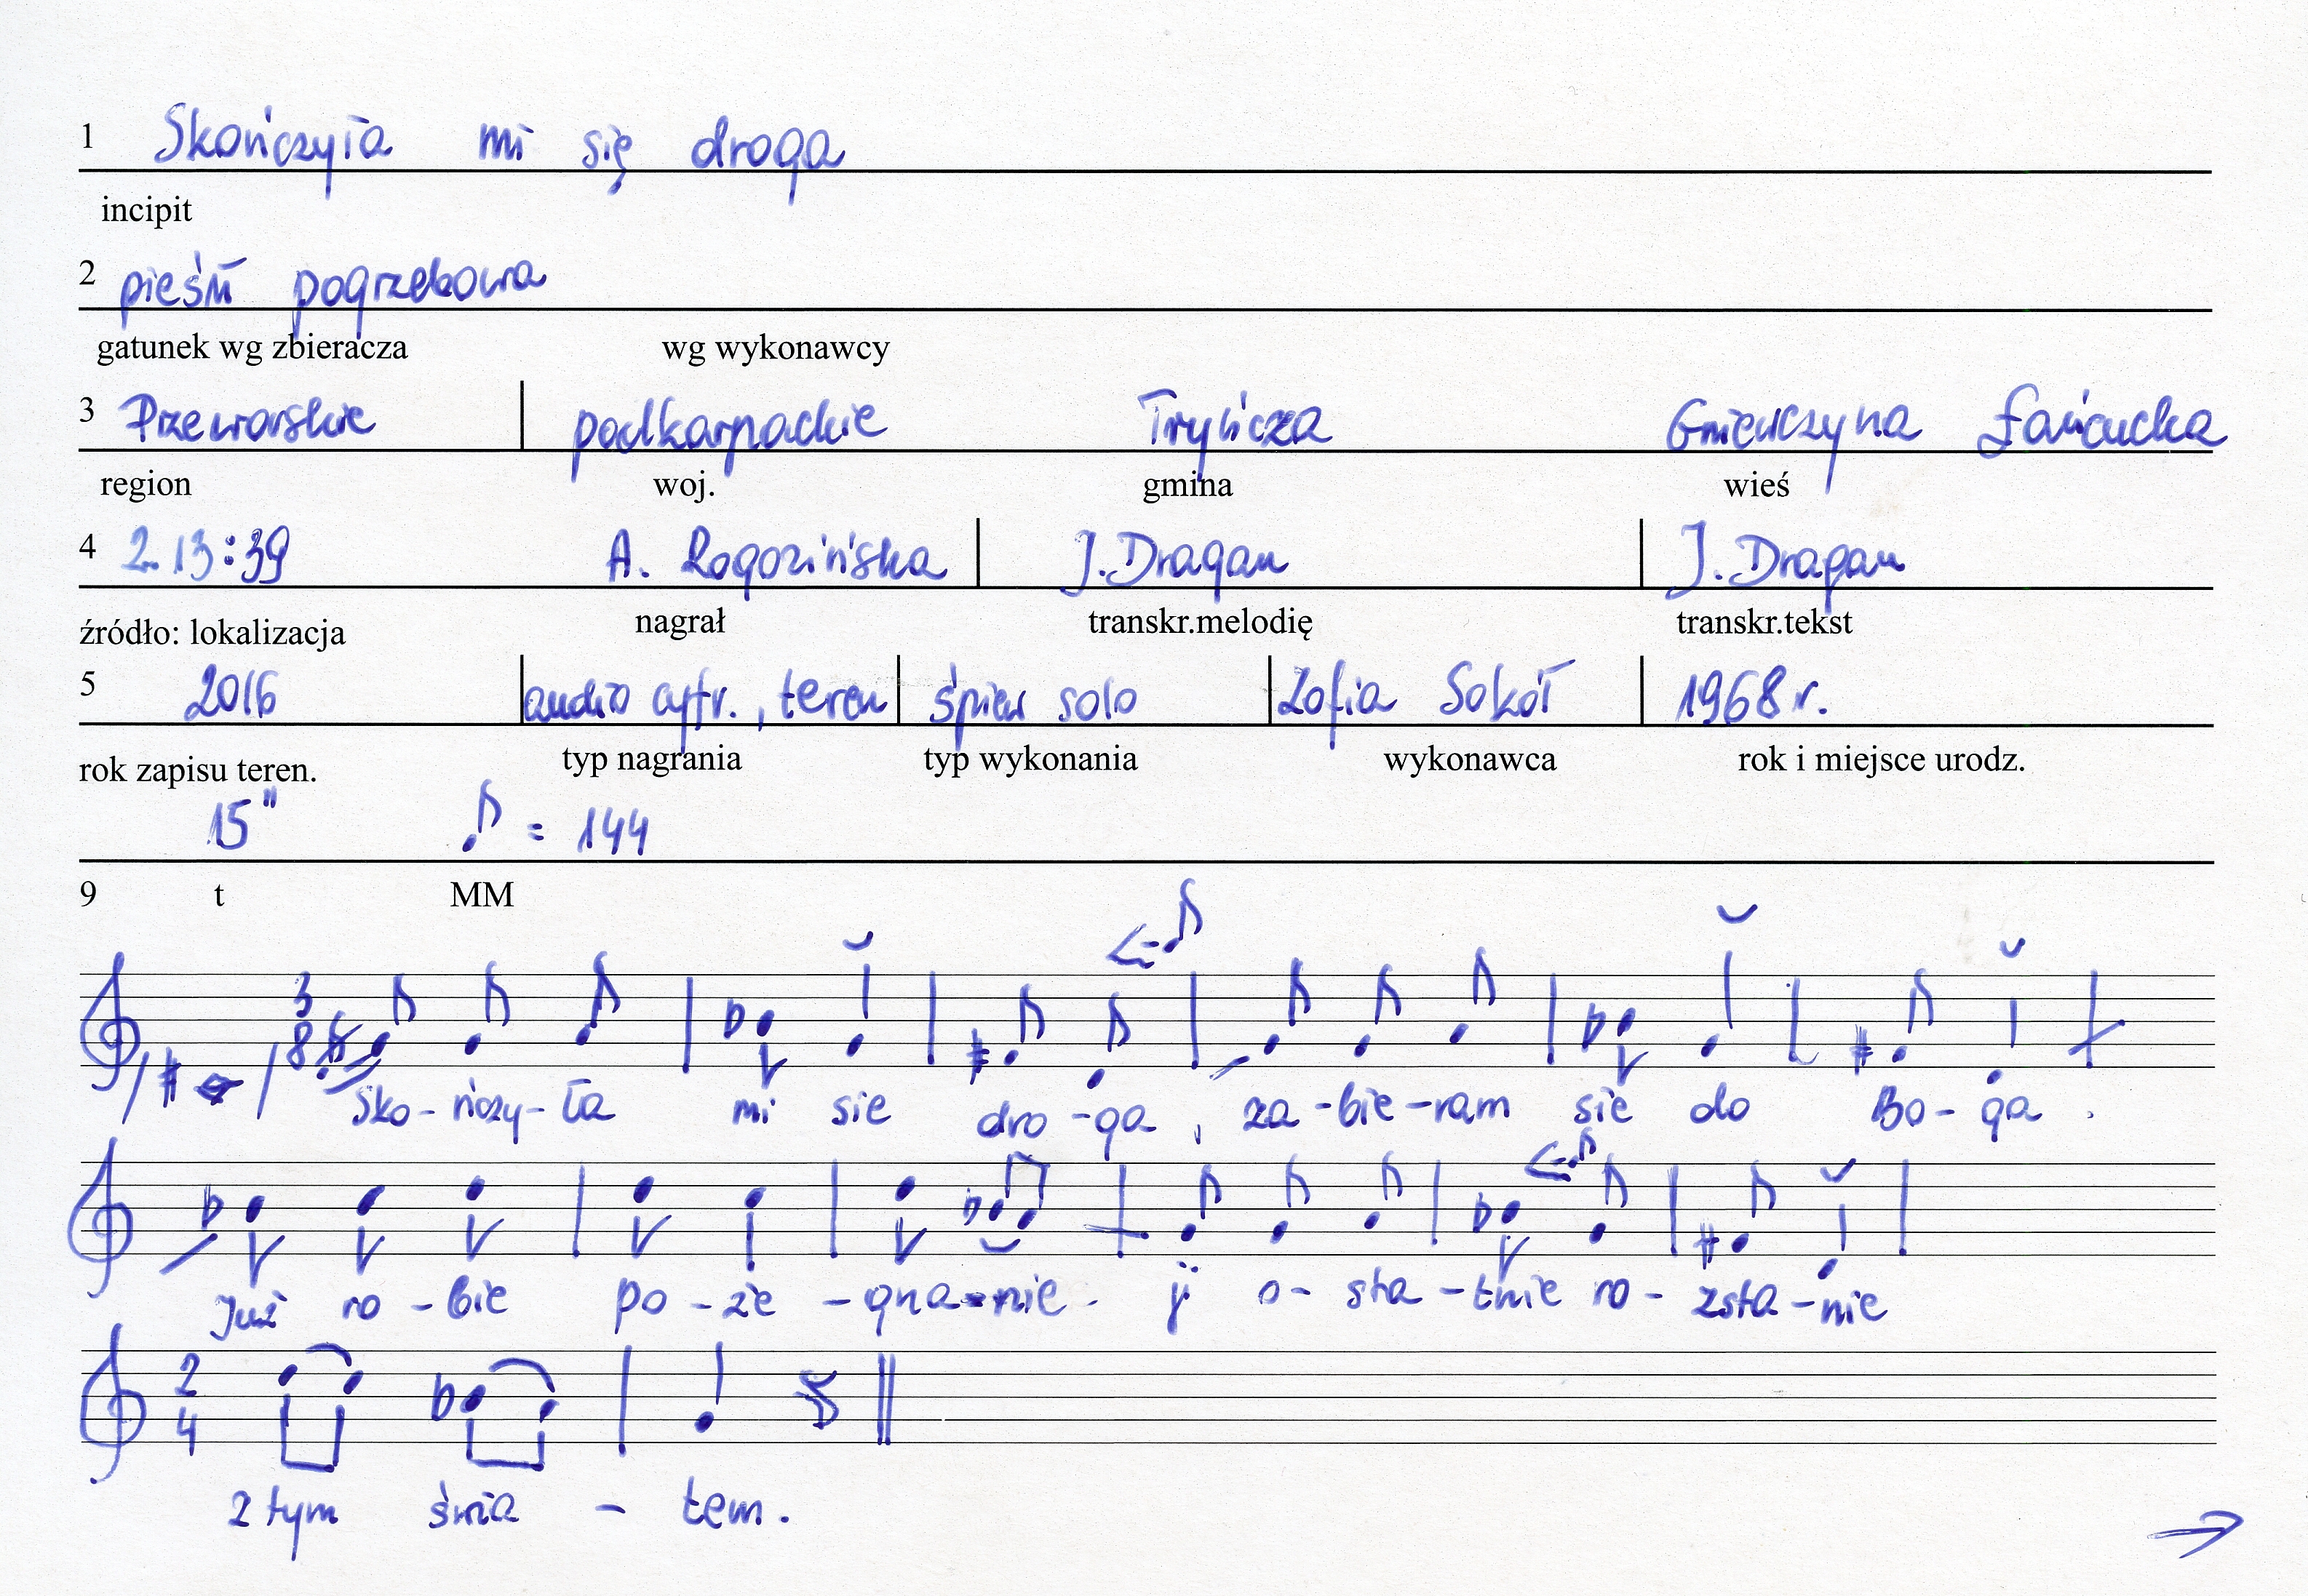 1 Skończyła mi się droga
incipit
2 pieśń pogrzebowa
gatunek wg zbieracza wg wykonawcy
3 Przeworskie podkarpackie Tryńcza Gniewczyna Łańcucka
region woj. gmina wieś
4 2.13:39 A. Rogozińska J. Dragan J. Dragan
źródło: lokalizacja nagrał transkr.melodię transkr.tekst
5 2016 audio cyfr., teren śpiew solo Zofia Sokół 1968 r.
rok zapisu teren. typ nagrania typ wykonania wykonawca rok i miejsce urodz.
15" ♪ = 144
9 t MM
3
8
Sko - ńczy - ła mi sie dro - ga, za - bie - ram sie do Bo - ga.
Już ro - bie po - że - gna - nie. ji o - sta - tnie ro - zsta - nie
2
4
z tym świa - tem.